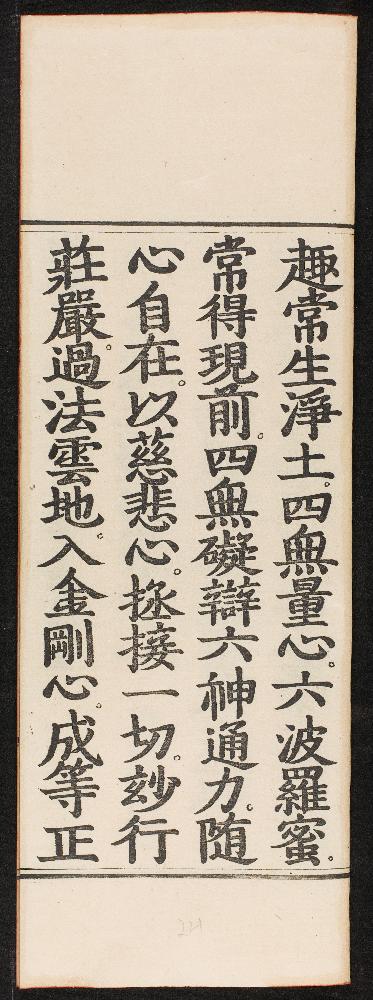 趣常生淨土。四無量心。六波羅蜜。
常得現前。四無礙辯六神通力。随
心自在。以慈悲心。拯接一切。玅行
莊嚴。過法雲地。入金剛心。成等正
221